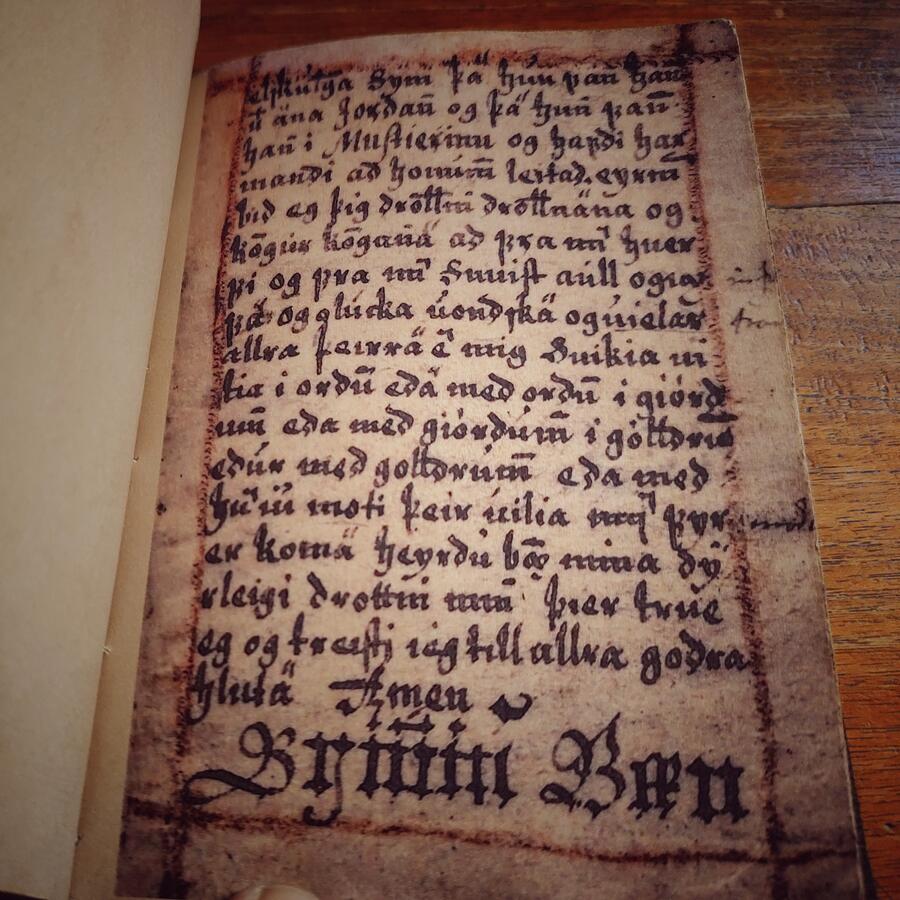 elskuliga Sÿni þä hun pan han
n äna Jordan̄ og þä hun̄ pan̄
han̄ i Mustierinu og hapdi har
mandi ad honum̄ leitad. eyrnn̄
bid eg þig drottin drottnäna og
kōgur kōgana ad pra mÿ huer
pi og pra mÿ Suuist aull og
pä og glucka uondskä og uielar
allra þeirrä ê mig Suikia ui
lia i ordū edä med ordū i giörd
um̄ eda med giördum̄ i golldru
edur med golldrum̄ eda med
moti þeir uilia þyr
er komä heyrdu bæ mina dÿ
rleigi drottin min þier true
eg og treisti ieg till allra godra
hlutä Amen
Bæn